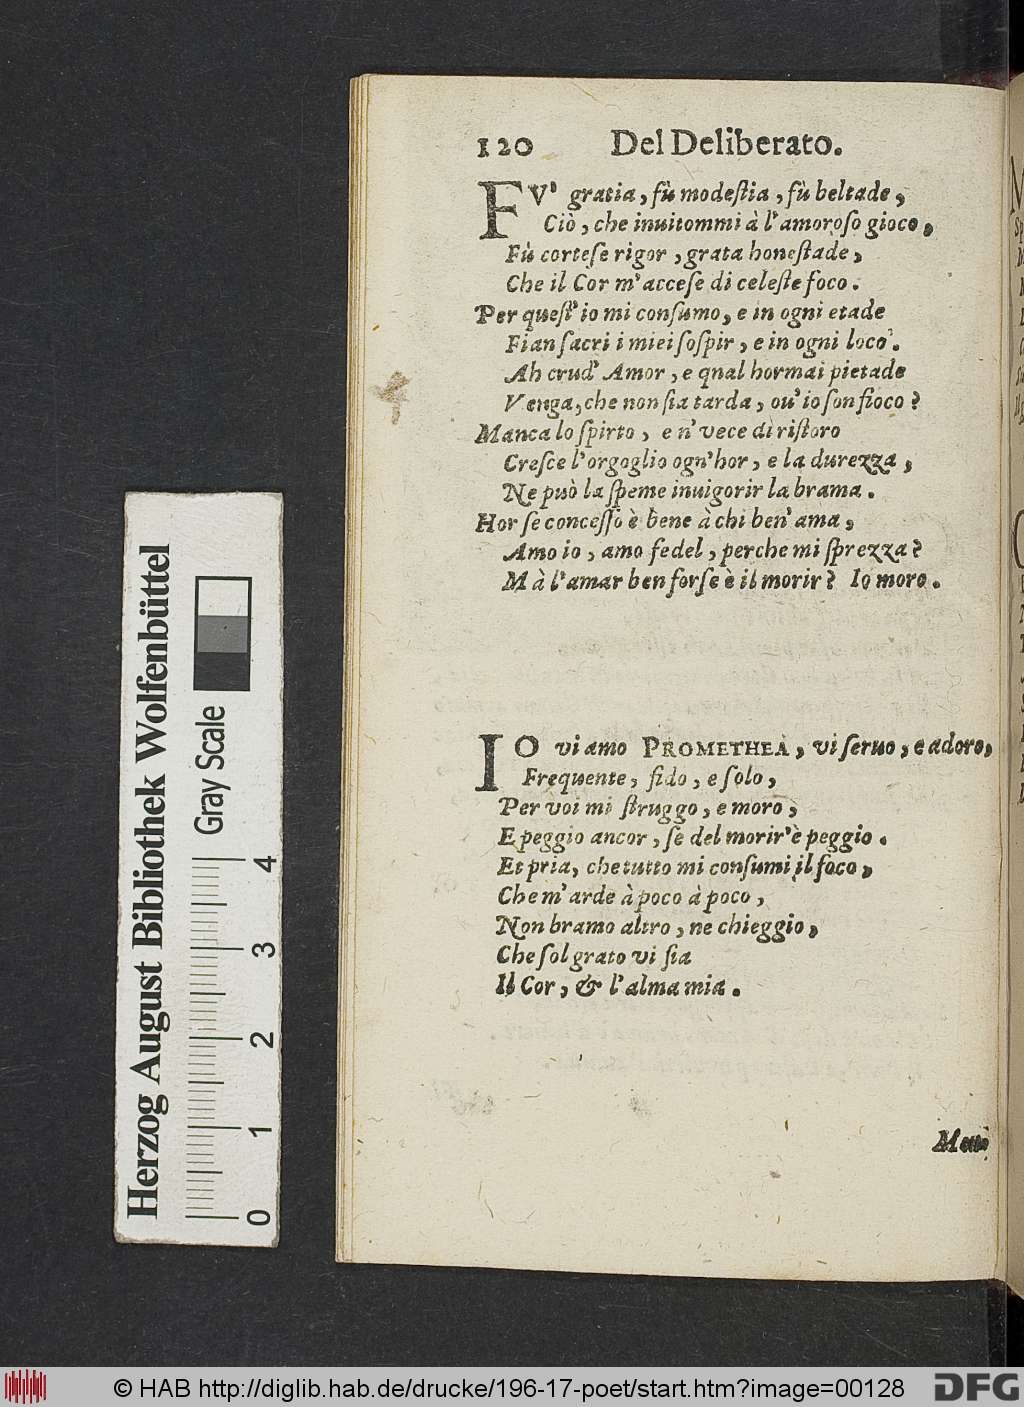 120 Del Deliberato.
FV' gratia, fù modeſtia, fù beltade,
Ciò, che inuitommi à l'amoroſo gioco,
Fù corteſe rigor, grata honeſtade,
Che il Cor m'acceſe di celeſte foco.
Per queſt' io mi conſumo, e in ogni etade
Fian ſacri i miei ſoſpir, e in ogni loco.
Ah crud' Amor, e qnal hormai pietade
Venga, che non ſia tarda, ou' io ſon fioco?
Manca lo ſpirto, e n' vece di riſtoro
Creſce l'orgoglio ogn'hor, e la durezza,
Ne può la ſpeme inuigorir la brama.
Hor ſe conceſſo è bene à chi ben' ama,
Amo io, amo fedel, perche mi ſprezza?
Mà l'amar ben forſe è il morir? Io moro.
IO vi amo PROMETHEA, vi ſeruo, e adoro,
Frequente, fido, e ſolo,
Per voi mi ſtruggo, e moro,
E peggio ancor, ſe del morir'è peggio.
Et pria, che tutto mi conſumi il foco,
Che m'arde à poco à poco,
Non bramo altro, ne chieggio,
Che ſol grato vi ſia
Il Cor, & l'alma mia.
Herzog August Bibliothek Wolfenbüttel
Gray Scale
0 1 2 3 4
© HAB http://diglib.hab.de/drucke/196-17-poet/start.htm?image=00128
DFG